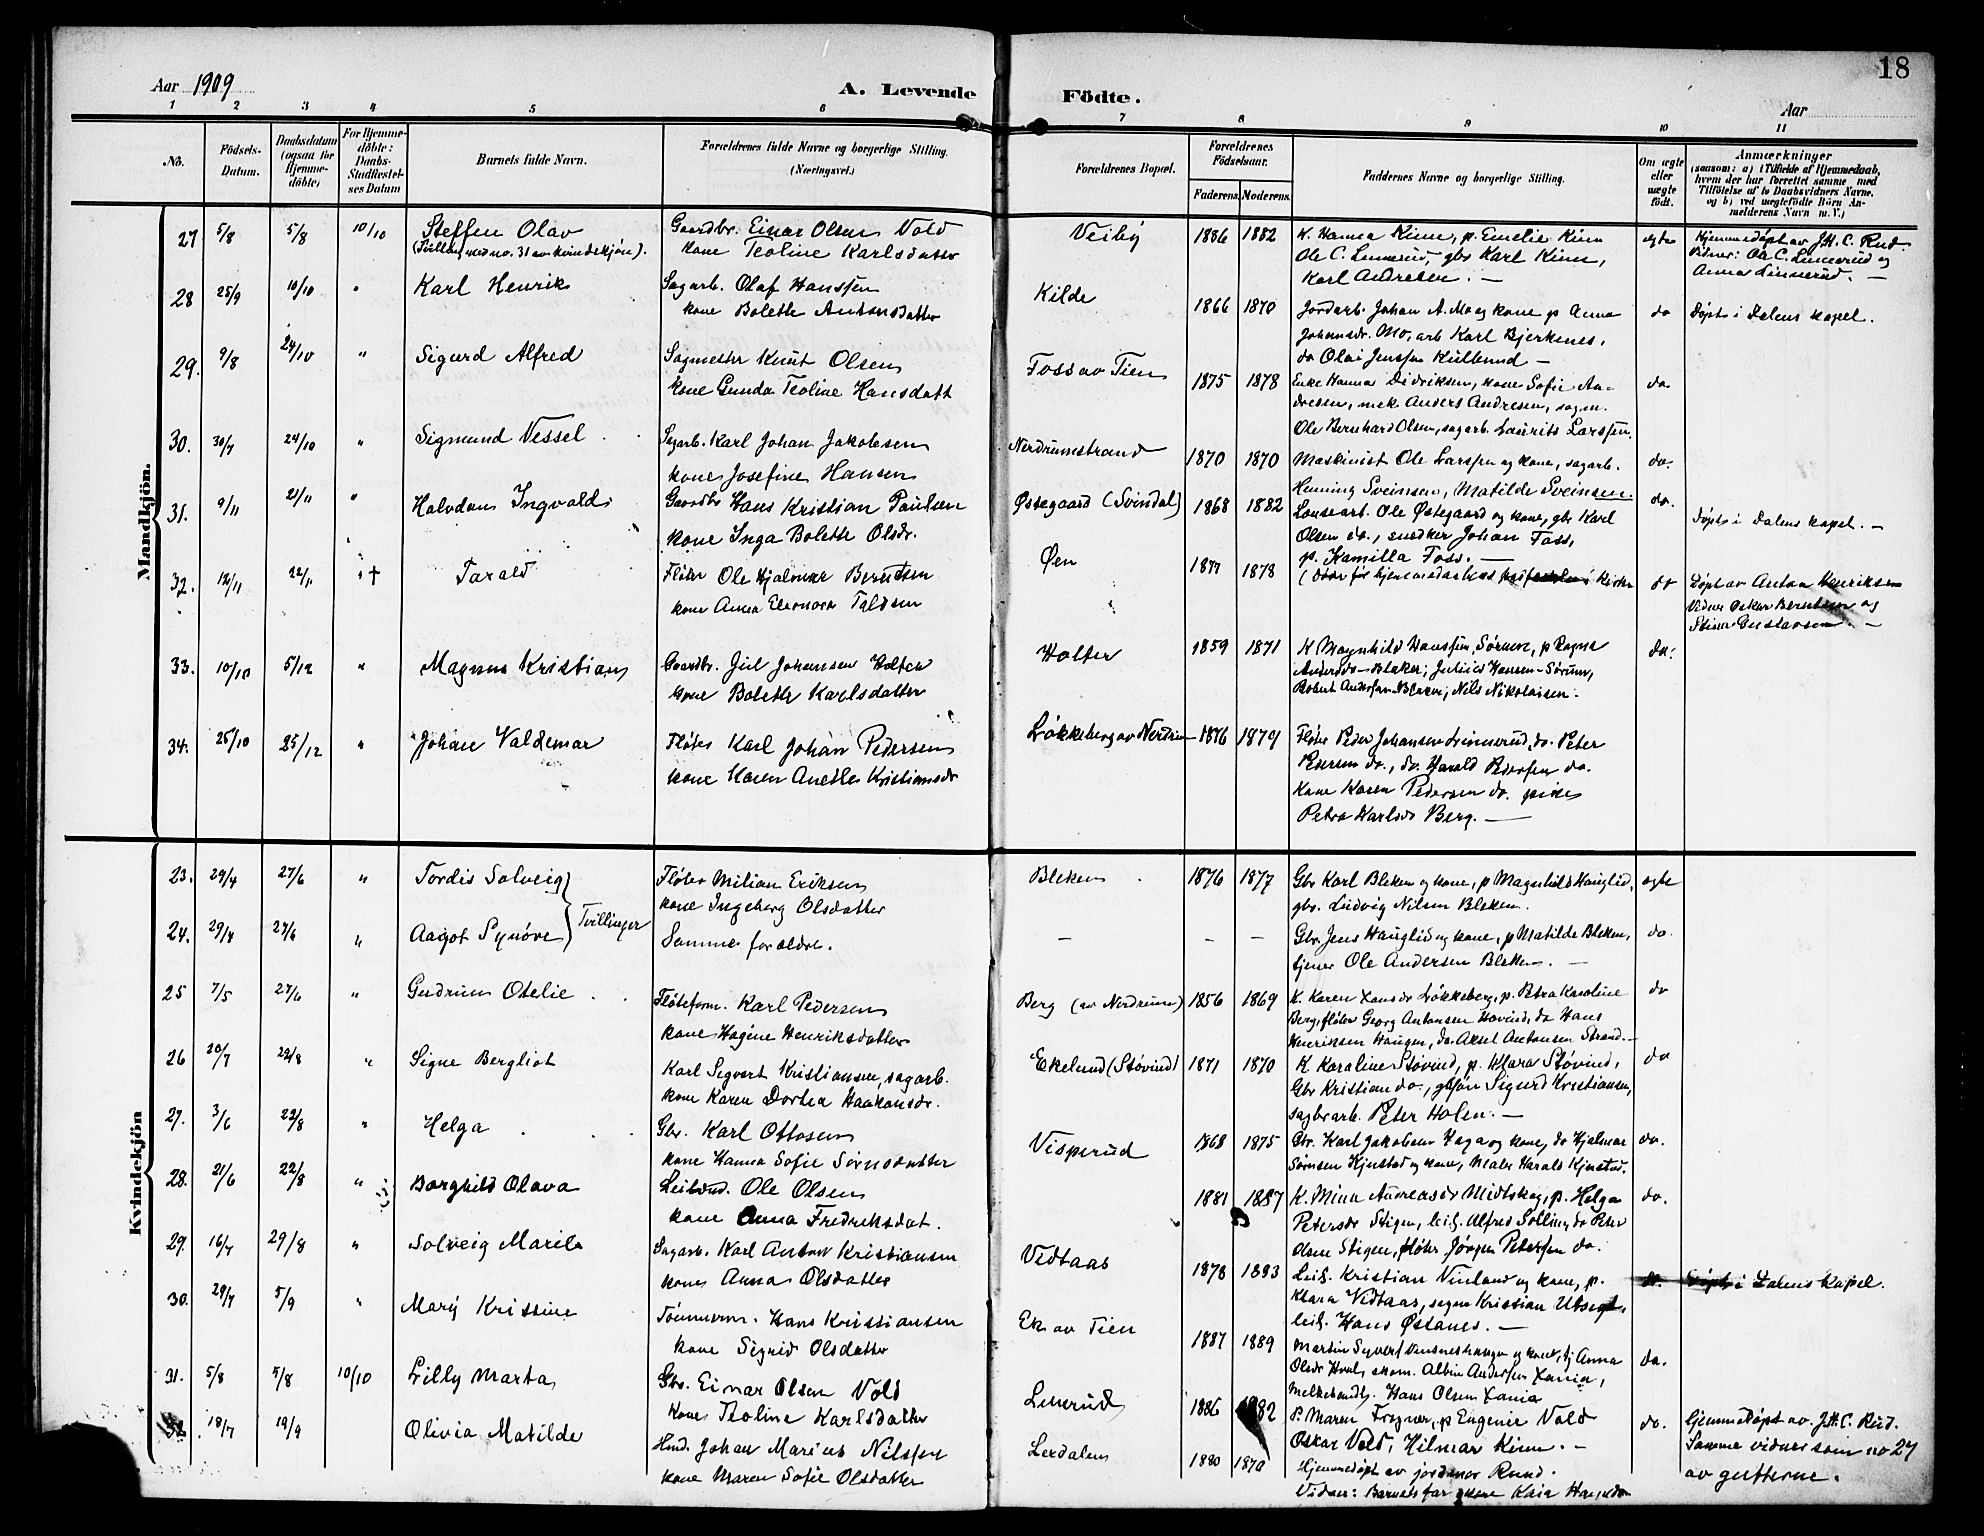 Aar 1909
A. Levende Födte.
Aar
18
1 2 3 4 5 6 7 8 9 10 11
No.
Födsels-Datum.
Daabsdatum (ogsaa for Hjemme-döbte)
For Hjemme-döbte: Daabs-Stadfæstel-ses Datum
Barnets fulde Navn.
Forældrenes fulde Navne og borgerlige Stilling. (Næringsvei.)
Forældrenes Bopæl.
Forældrenes Födselsaar.
Faderens. Moderens.
Faddernes Navne og borgerlige Stilling.
Om ægte eller uægte födt.
Anmærkninger
(saasom: a) i Tilfælde af Hjemmedaab,
hvem der har forrettet samme med
Tilföielse af to Daabsvidners Navne.
og b) ved uægtefödte Börn An-
melderens Navn m. V.)
Mandkjön.
27 5/8 5/8 10/10 Steffen Olav Gaardbr. Einar Olsen Vold Veiby 1886 1882 K. Hanna Kinn, p. Emelie Kinn ægte Hjemmedøpt av J.H.C. Rud.
(Tvilling med no. 31 av kvindekjøn). kone Teoline Karlsdatter Ole C. Linnerud, gbr Karl Kinn, Vidner: Ole C. Linnerud og
Karl Andresen. — Anna Linnerud. —
28 25/9 10/10 " Karl Henrik Sagarb. Olaf Hanssen Kilde 1866 1870 Jordarb. Johan A. Mo og kone p Anna do Døpt i Dalens kapel.
kone Bolette Antonsdatter Johansdr. Mo, arb Karl Bjerkenes,
do Olai Jenssen —
29. 9/8 24/10 " Sigurd Alfred Sagmester Knut Olsen Foss av Tien 1875 1878 Enke Hanna Didriksen, kone Sofie An- do
kone Gunda Teoline Hansdatt dresen, mek Anders Andresen, sagm.
Ole Bernhard Olsen, sagarb. Laurits Larssen.
30. 30/7 24/10 " Sigmund Vessel Sagarb. Karl Johan Jakobsen Nerdrumstrand 1870 1870 Maskinist Ole Larssen og kone, sagarb. do.
kone Josefine Hansen Henning Sveinsen, Matilde Sveinsen.
31. 9/11 21/11 " Halvdan Ingvald Gaardbr Hans Kristian Paulsen Østegaard (Svindal) 1868 1882 Ole Østegaard og kone, gbr Karl do. Døpt i Dalens kapel. —
kone Inga Bolette Olsdr. Olsen do., snedker Johan Foss,
p. Kamilla Foss. —
32. 12/11 22/11 " † Tarald Fløter Ole Hjalmar Berntsen Øen 1877 1878 (døde før hjemmedaaben i kirken do Døpt av Anton Henriksen
kone Anna Eleonora Vidner Oskar Berntsen og
Stina Gustavsen. —
33. 10/10 5/12 " Magnus Kristian Gaardbr. Jul Johansen Holter Holter 1859 1871 K Magnhild Hanssen, Sørum, p Ragna do.
kone Bolette Karlsdatter Blaker; Julius Hansen Sørum,
Robert Andersen Blaker; Nils Nikolaisen.
34. 25/10 25/12 " Johan Valdemar Fløter Karl Johan Pedersen Løkkeberg av Nerdrum 1876 1879 Fløter Peder Johansen Linnerud, do. Peter
kone Karen Anette Kristiansdr Pedersen do., do. Harald Pedersen do.
kone Karen Pedersen do. pike
Petra Karlsdr Berg. —
Kvindekjön
23. 29/4 27/6 " Tordis Solveig } Tvillinger Fløter Milian Eriksen Bleken 1876 1877 Gbr Karl Bleken og kone, p Magnhild Hauglid, ægte
kone Ingeborg Olsdatter gbr. Ludvig Nilsen Bleken.
24. 29/4 27/6 " Aagot Synøve Samme forældre. — — — Gbr. Jens Hauglid og kone, p Matilde Bleken, do.
tjener Ole Andersen Bleken. —
25 7/5 27/6 " Gudrun Otelie Fløteform. Karl Pedersen Berg (av Nerdrum) 1856 1869 K. Karen Løkkeberg, p. Petra Karoline do
kone Hagine Henriksdatter Berg, fløter Georg Antonsen Hovind, do Hans
Henriksen Haugen, do. Aksel Antonsen Strand. —
26 20/7 22/8 " Signe Bergliot Karl Segvart Kristiansen, sagarb. Ekelund (Støvind) 1871 1870 K. Karoline Støvind, p. Klara Støvind, do
kone Karen Dortea Haakonsdr. Gbr Kristian do., Sigurd Kristiansen,
sagbrarb. Peter Holen. —
27. 3/6 22/8 " Helga Gbr. Karl Ottosen Visperud 1868 1875 Gbr. Karl Jakobsen Haga og kone, do Hjalmar do.
kone Hanna Sofie Sørnsdatter Sørnsen Kjnstad og kone, Maler Harald Kjnstad.
28. 21/6 22/8 " Borghild Olava Leilænd. Ole Olsen 1881 1887 K. Mina Andreasdr Midtskog, p. Helga do.
kone Anna Fredriksdat. Petersdr Stigen, leil. Alfred Solli, do Peter
Stigen, fløter Jørgen Petersen do.
29. 16/7 29/8 " Solveig Marila Sagarb. Karl Anton Kristiansen Vedtaas 1878 1883 Leil. Kristian Vinland og kone, p. do. Døpt i Dalens kapel.
kone Anna Olsdatter Klara Vedtaas, Kristian
leil. Hans Østanes. —
30. 28/7 5/9 " Mary Kristine Tømmerm. Hans Kristiansen Ek av Tien 1887 1889 Martin Syvert og kone, Anna do.
kone Sigrid Olsdatter Olsdr skom. Albin Andersen
Hans Olsen
31. 5/8 5/8 10/10 Lilly Marta Gbr. Einar Olsen Vold Linerud 1886 1882 P. Maren Frogner, p Eugenie Vold do. Hjemmedøpt av J.H.C. Rud.
Kone Teoline Karlsdatter Oskar Vold, Hilmar Kinn. — Samme vidner som no 27
32 18/7 19/9 Olivia Matilde Hmd. Johan Marius Nilssen Lerdalen 1880 1870 Hjemmedøpt av jordmor Ruud. av gutterne.
kone Maren Sofie Olsdatter Vidner: Barnets far Kaia